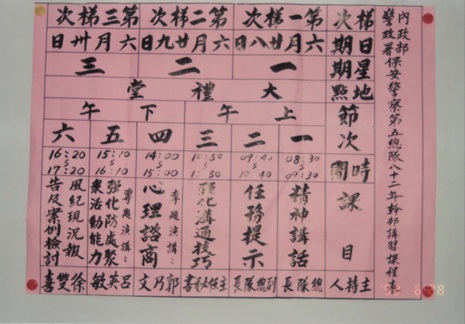 內政部警政署保安警察第五總隊八十二年幹部講習課程表
梯次 第一梯次 第二梯次 第三梯次
日期 六月廿八日 六月廿九日 六月卅日
星期 一 二 三
地點 大禮堂
節次 上午 下午
一 二 三 四 五 六
時間 08:30 09:30 09:40 10:40 10:50 14:00 15:00 15:10 16:10 16:20 17:20
課目
精神講話
任務提示
強化溝通技巧
專題演講：
心理諮商
專題演講：
強化防處聚
眾活動能力
風紀現況報
告及案例檢討
主持人 總隊長 副總隊長 郭乃文 呂英敏 徐雙喜